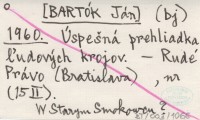 [BARTÓK Ján] (bj)
1960. Úspešná prehliadka
ľudových krojov. — Rudé
Právo (Bratislava), nr
(15 II).
W Starym Smokowcu ?